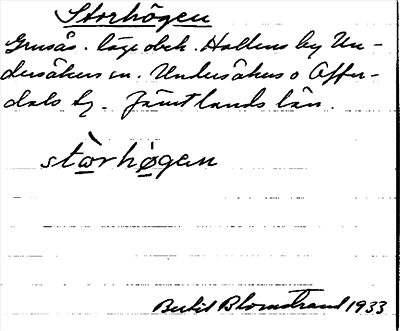 Storhögen
Grusås. läge obek. Hallens by Un-
dersåkers sn. Undersåkers o Offer-
dals tg. Jämtlands län.
stòrhøgen
Bertil Blomstrand 1933